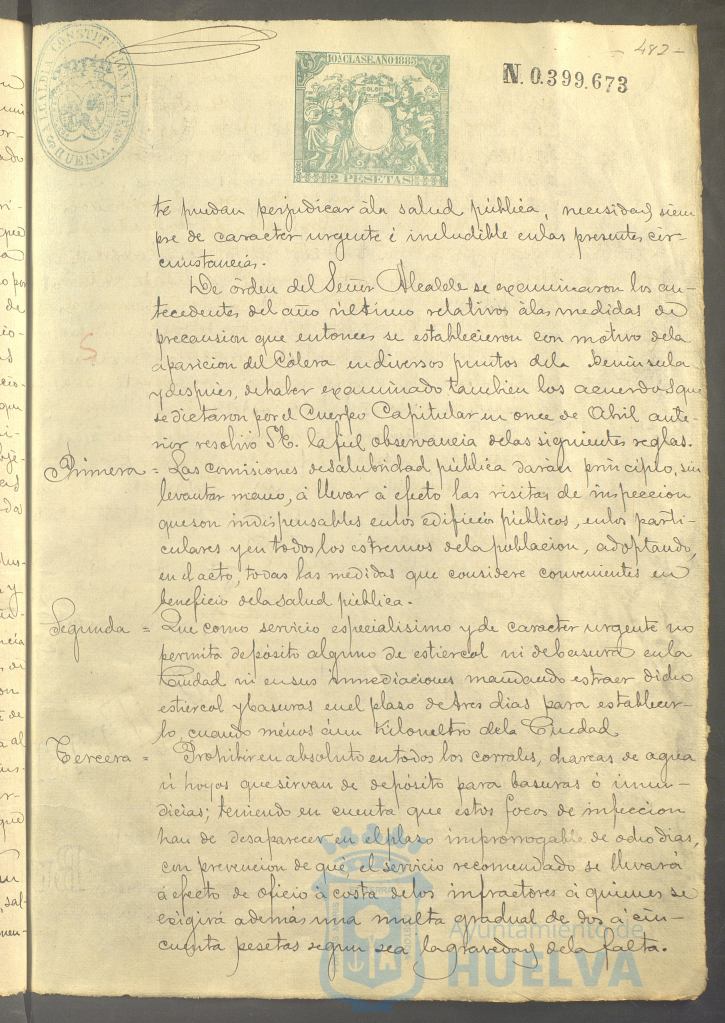 - 482 -
ALCALDIA CONSTITUCIONAL DE HUELVA
10ª CLASE. AÑO 1885
2 PESETAS
N. 0.399.673
te puedan perjudicar á la salud pública, necesidad siem
pre de caracter urgente é ineludible en las presentes cir-
cunstancias.
De órden del Señor Alcalde se examinaron los an-
tecedentes del año último relativos á las medidas de
precausion que entonces se establecieron con motivo de la
aparicion del Cólera en diversos puntos de la Peninsula
y despues, de haber examinado tambien los acuerdos que
se dictaron por el Cuerpo Capitular en once de Abril ante-
rior resolvió S.E. la fiel observancia de las siguientes reglas.
Primera = Las comisiones de salubridad pública darán principio, sin
levantar mano, á llevar á efecto las visitas de inspeccion
que son indispensables en los edificios públicos, en los parti-
culares y en todos los estremos de la poblacion, adoptando,
en el acto, todas las medidas que considere convenientes en
beneficio de la salud pública.
Segunda = Que como servicio especialisimo y de caracter urgente no
permita depósito alguno de estiercol ni de basura en la
Ciudad ni en sus inmediaciones mandando estraer dicho
estiercol y basuras en el plaso de tres dias para establecer-
lo, cuando ménos á un Kilometro de la Ciudad.
Tercera = Prohibir en absoluto en todos los corrales, charcas de agua
ni hoyos que sirvan de depósito para basuras ó inmun-
dicias; teniendo en cuenta que estos focos de infeccion
han de desaparecer en el plazo improrrogable de ocho dias,
con prevencion de que el servicio recomendado se llevará
á efecto de oficio á costa de los infractores á quienes se
exigirá además una multa gradual de dos á cin-
cuenta pesetas segun sea la gravedad de la falta.
S
Ayuntamiento de
HUELVA